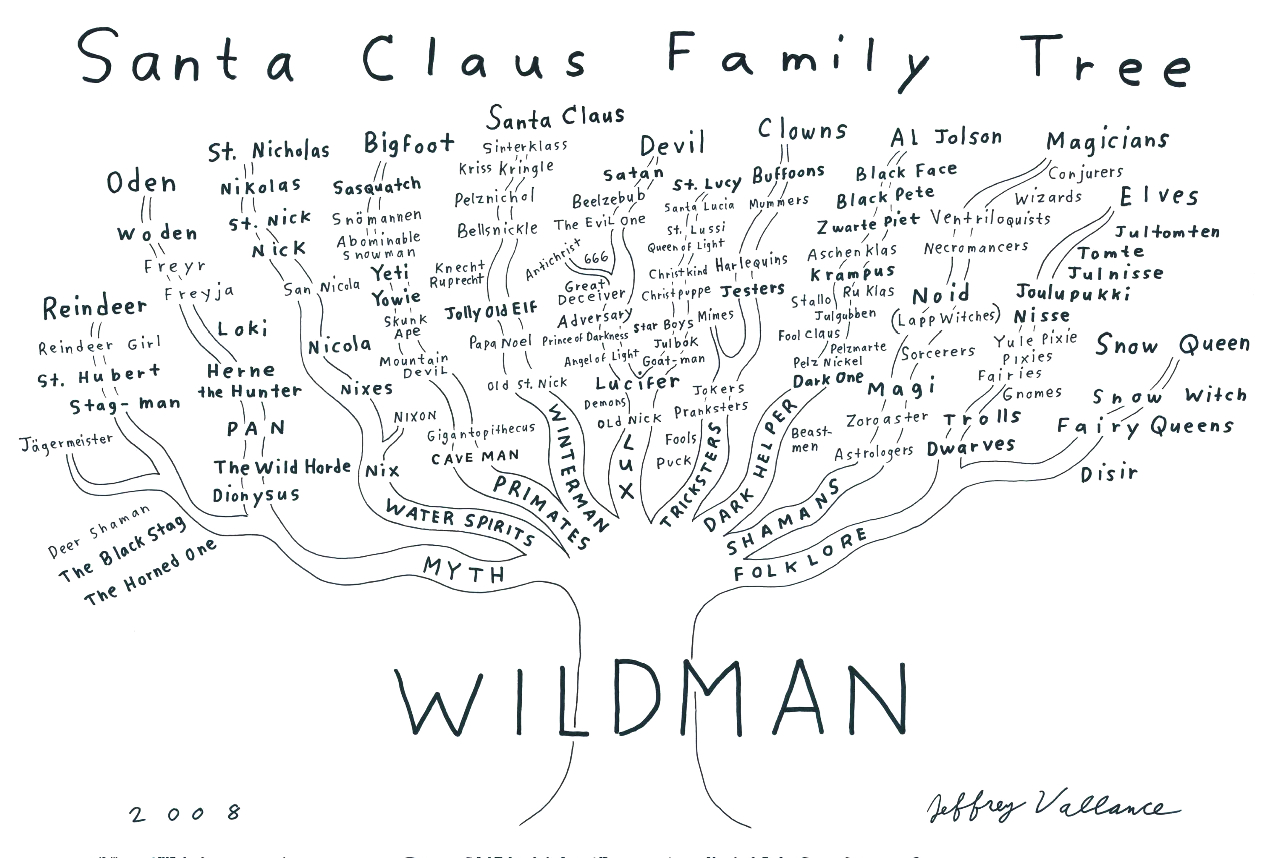 Santa Claus Family Tree
Oden
Woden
Freyr
Freyja
Loki
Herne
the Hunter
PAN
The Wild Horde
Dionysus
Reindeer
Reindeer Girl
St. Hubert
Stag-man
Jägermeister
Deer Shaman
The Black Stag
The Horned One
MYTH
St. Nicholas
Nikolas
St. Nick
Nick
San Nicola
Nicola
Nixes
NIXON
Nix
WATER SPIRITS
Bigfoot
Sasquatch
Snömannen
Abominable
Snowman
Yeti
Yowie
Skunk
Ape
Mountain
Devil
Gigantopithecus
CAVE MAN
PRIMATES
Santa Claus
Sinterklass
Kriss Kringle
Pelznichol
Bellsnickle
Knecht
Ruprecht
Jolly Old Elf
Papa Noel
Old St. Nick
WINTERMAN
Devil
Satan
Beelzebub
The Evil One
Antichrist
666
Great
Deceiver
Adversary
Prince of Darkness
Angel of Light
Lucifer
Demons
Old Nick
LUX
St. Lucy
Santa Lucia
St. Lussi
Queen of Light
Christkind
Christpuppe
Star Boys
Julbok
Goat-man
Clowns
Buffoons
Mummers
Harlequins
Jesters
Mimes
Jokers
Pranksters
Fools
Puck
TRICKSTERS
Al Jolson
Black Face
Black Pete
Zwarte Piet
Aschenklas
Krampus
Stallo
Ru Klas
Julgubben
Fool Claus
Pelzmarte
Pelz Nickel
Dark One
Beast-
men
DARK HELPER
Magicians
Conjurers
Wizards
Ventriloquists
Necromancers
Noid
(Lapp Witches)
Sorcerers
Magi
Zoroaster
Astrologers
SHAMANS
Elves
Jultomten
Tomte
Julnisse
Joulupukki
Nisse
Yule Pixie
Pixies
Fairies
Gnomes
Trolls
Dwarves
Snow Queen
Snow Witch
Fairy Queens
Disir
FOLKLORE
WILDMAN
2008
Jeffrey Vallance